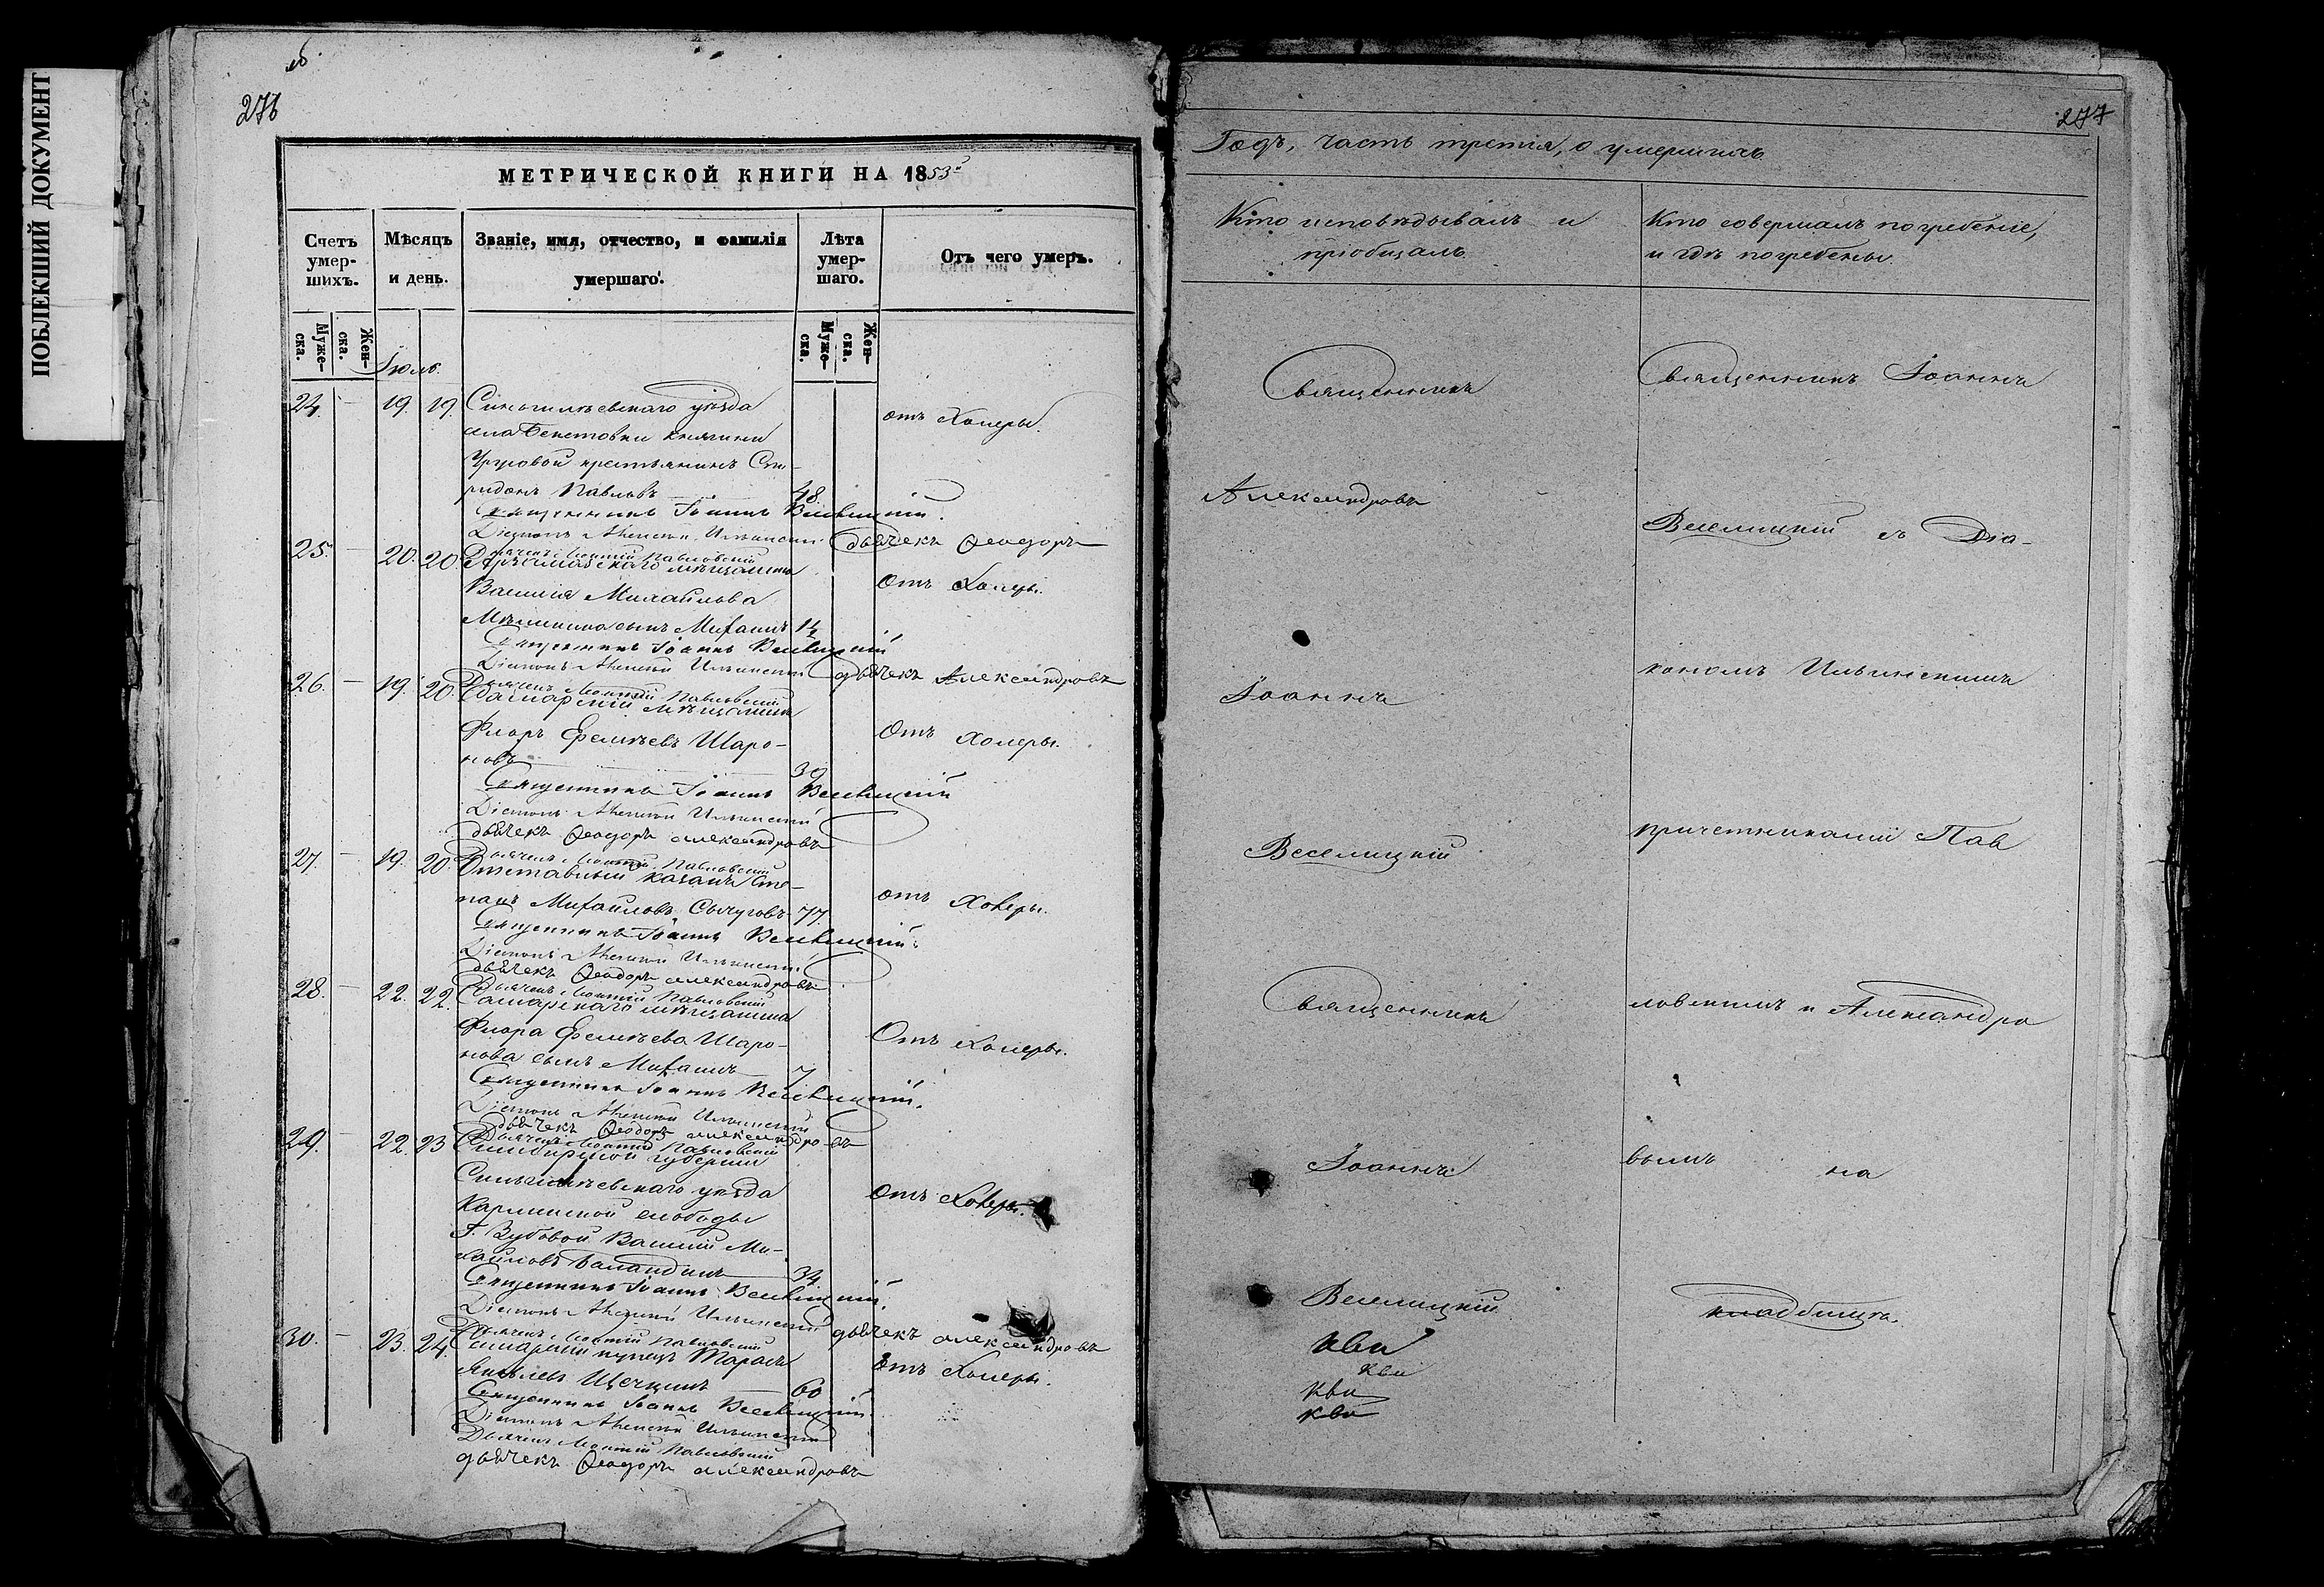 ПОБЛЕКШИЙ ДОКУМЕНТ
276
МЕТРИЧЕСКОЙ КНИГИ НА 1853й
Счетъ умер-шихъ.
Мѣсяцъ и день.
Званіе, имя, отчество, и фамилія умершаго.
Лѣта умер-шаго.
Отъ чего умеръ.
Муже-ска.
Жен-ска.
Муже-ска.
Жен-ска.
Іюль.
24. 19. 19. Сингилѣевскаго уѣзда
села Бекетовки княгини
отъ Холеры.
крестьянинъ Спи-
ридонъ Павловъ 48.
Священникъ Іоаннъ Веселицкій.
Діаконъ Алексѣй Ильинскій
дьячекъ Ѳеодоръ
Дьячекъ Павловскій
25. 20. 20. мѣщанина
Василія Михайлова
Отъ Холеры.
сынъ Михаилъ
Священникъ Іоаннъ Веселицкій
Діаконъ Алексѣй Ильинскій
дьячекъ Александровъ
Дьячекъ Павловскій
26. 19. 20. Самарскій мѣщанинъ
Флоръ Ефимѣевъ Шаро-
Отъ Холеры.
новъ 39
Священникъ Іоаннъ Веселицкій
Діаконъ Алексѣй Ильинскій
дьячекъ Ѳеодоръ Александровъ
Дьячекъ Павловскій
27. 19. 20. Отставный казакъ Сте-
панъ Михайловъ Сычуговъ 77.
отъ Холеры.
Священникъ Іоаннъ Веселицкій.
Діаконъ Алексѣй Ильинскій
дьячекъ Ѳеодоръ Александровъ
Дьячекъ Павловскій
28. 22. 22. Самарскаго мѣщанина
Флора Ефимѣева Шаро-
Отъ Холеры.
нова сынъ Михаилъ 7
Священникъ Іоаннъ Веселицкій.
Діаконъ Алексѣй Ильинскій
дьячекъ Ѳеодоръ Александровъ
Дьячекъ Павловскій
29. 22. 23 Симбирской губерніи
Сингилѣевскаго уѣзда
Отъ Холеры.
Карлинской слободы
Г. Зубовой Василій Ми-
хайловъ Баландинъ 34.
Священникъ Іоаннъ Веселицкій.
Діаконъ Алексѣй Ильинскій
дьячекъ Александровъ
Дьячекъ Павловскій
30. 23. 24. Самарскій купецъ Тарасъ
Яковлевъ Щечкинъ 60
Отъ Холеры.
Священникъ Іоаннъ Веселицкій.
Діаконъ Алексѣй Ильинскій
Дьячекъ Павловскій
дьячекъ Ѳеодоръ Александровъ
277
Годъ, часть третія, о умершихъ
Кто исповѣдывалъ и
пріобщалъ
Кто совершалъ погребеніе,
и гдѣ погребены.
Священникъ
Александровъ
Іоаннъ
Веселицкій
Священникъ
Іоаннъ
Веселицкій
Священникъ Іоаннъ
Веселицкій съ Діа-
кономъ Ильинскимъ
причетниками Пав
ловскимъ и Александро
вымъ на
кладбищѣ.